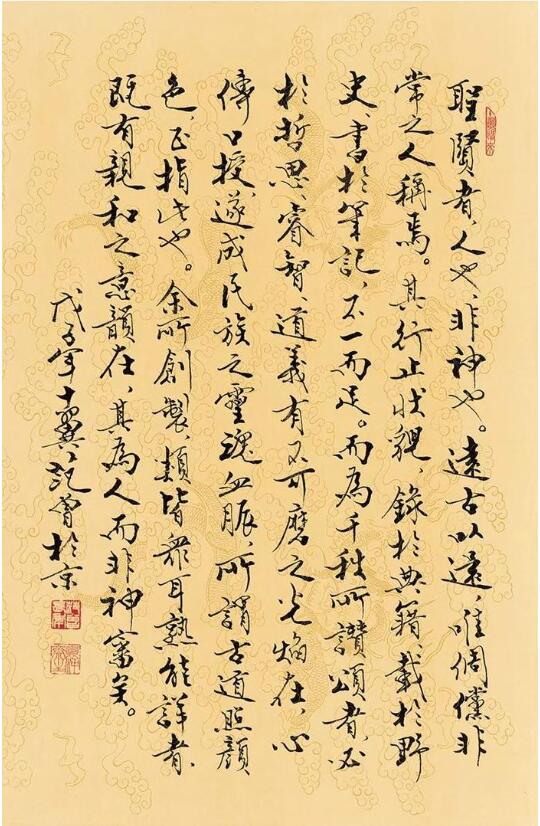 聖賢者、人也、非神也。遠古以還唯倜儻非
常之人稱焉。其行止狀貌、錄於典籍、載於野
史、書於筆記、不一而足。而為千秋所讚頌者、必
於哲思、睿智、道義有不可磨之光焰在、心
傳口授、遂成民族之靈魂血脈、所謂古道照顏
色、正指此也。余所創製、類皆眾耳熟能詳者、
既有親和之意韻在、其為人而非神審矣。
戊子年十翼范曾於京